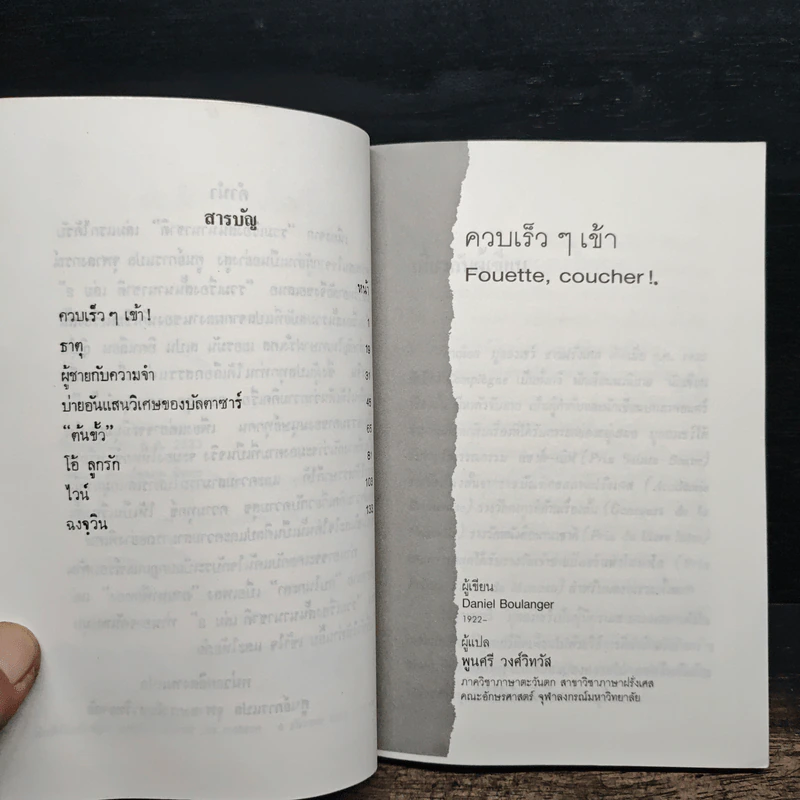 สารบัญ
หน้า
ควบเร็ว ๆ เข้า ! 1
ธาตุ 19
ผู้ชายกับความจำ 31
บ่ายอันแสนวิเศษของบัลตาซาร์ 45
“ต้นขั้ว” 65
โอ้ ลูกรัก 81
ไวน์ 103
ฉงจฺวิน 133
ควบเร็ว ๆ เข้า
Fouette, coucher !.
ผู้เขียน
Daniel Boulanger
1922–
ผู้แปล
พูนศรี วงศ์วิทวัส
ภาควิชาภาษาตะวันตก สาขาวิชาภาษาฝรั่งเศส
คณะอักษรศาสตร์ จุฬาลงกรณ์มหาวิทยาลัย